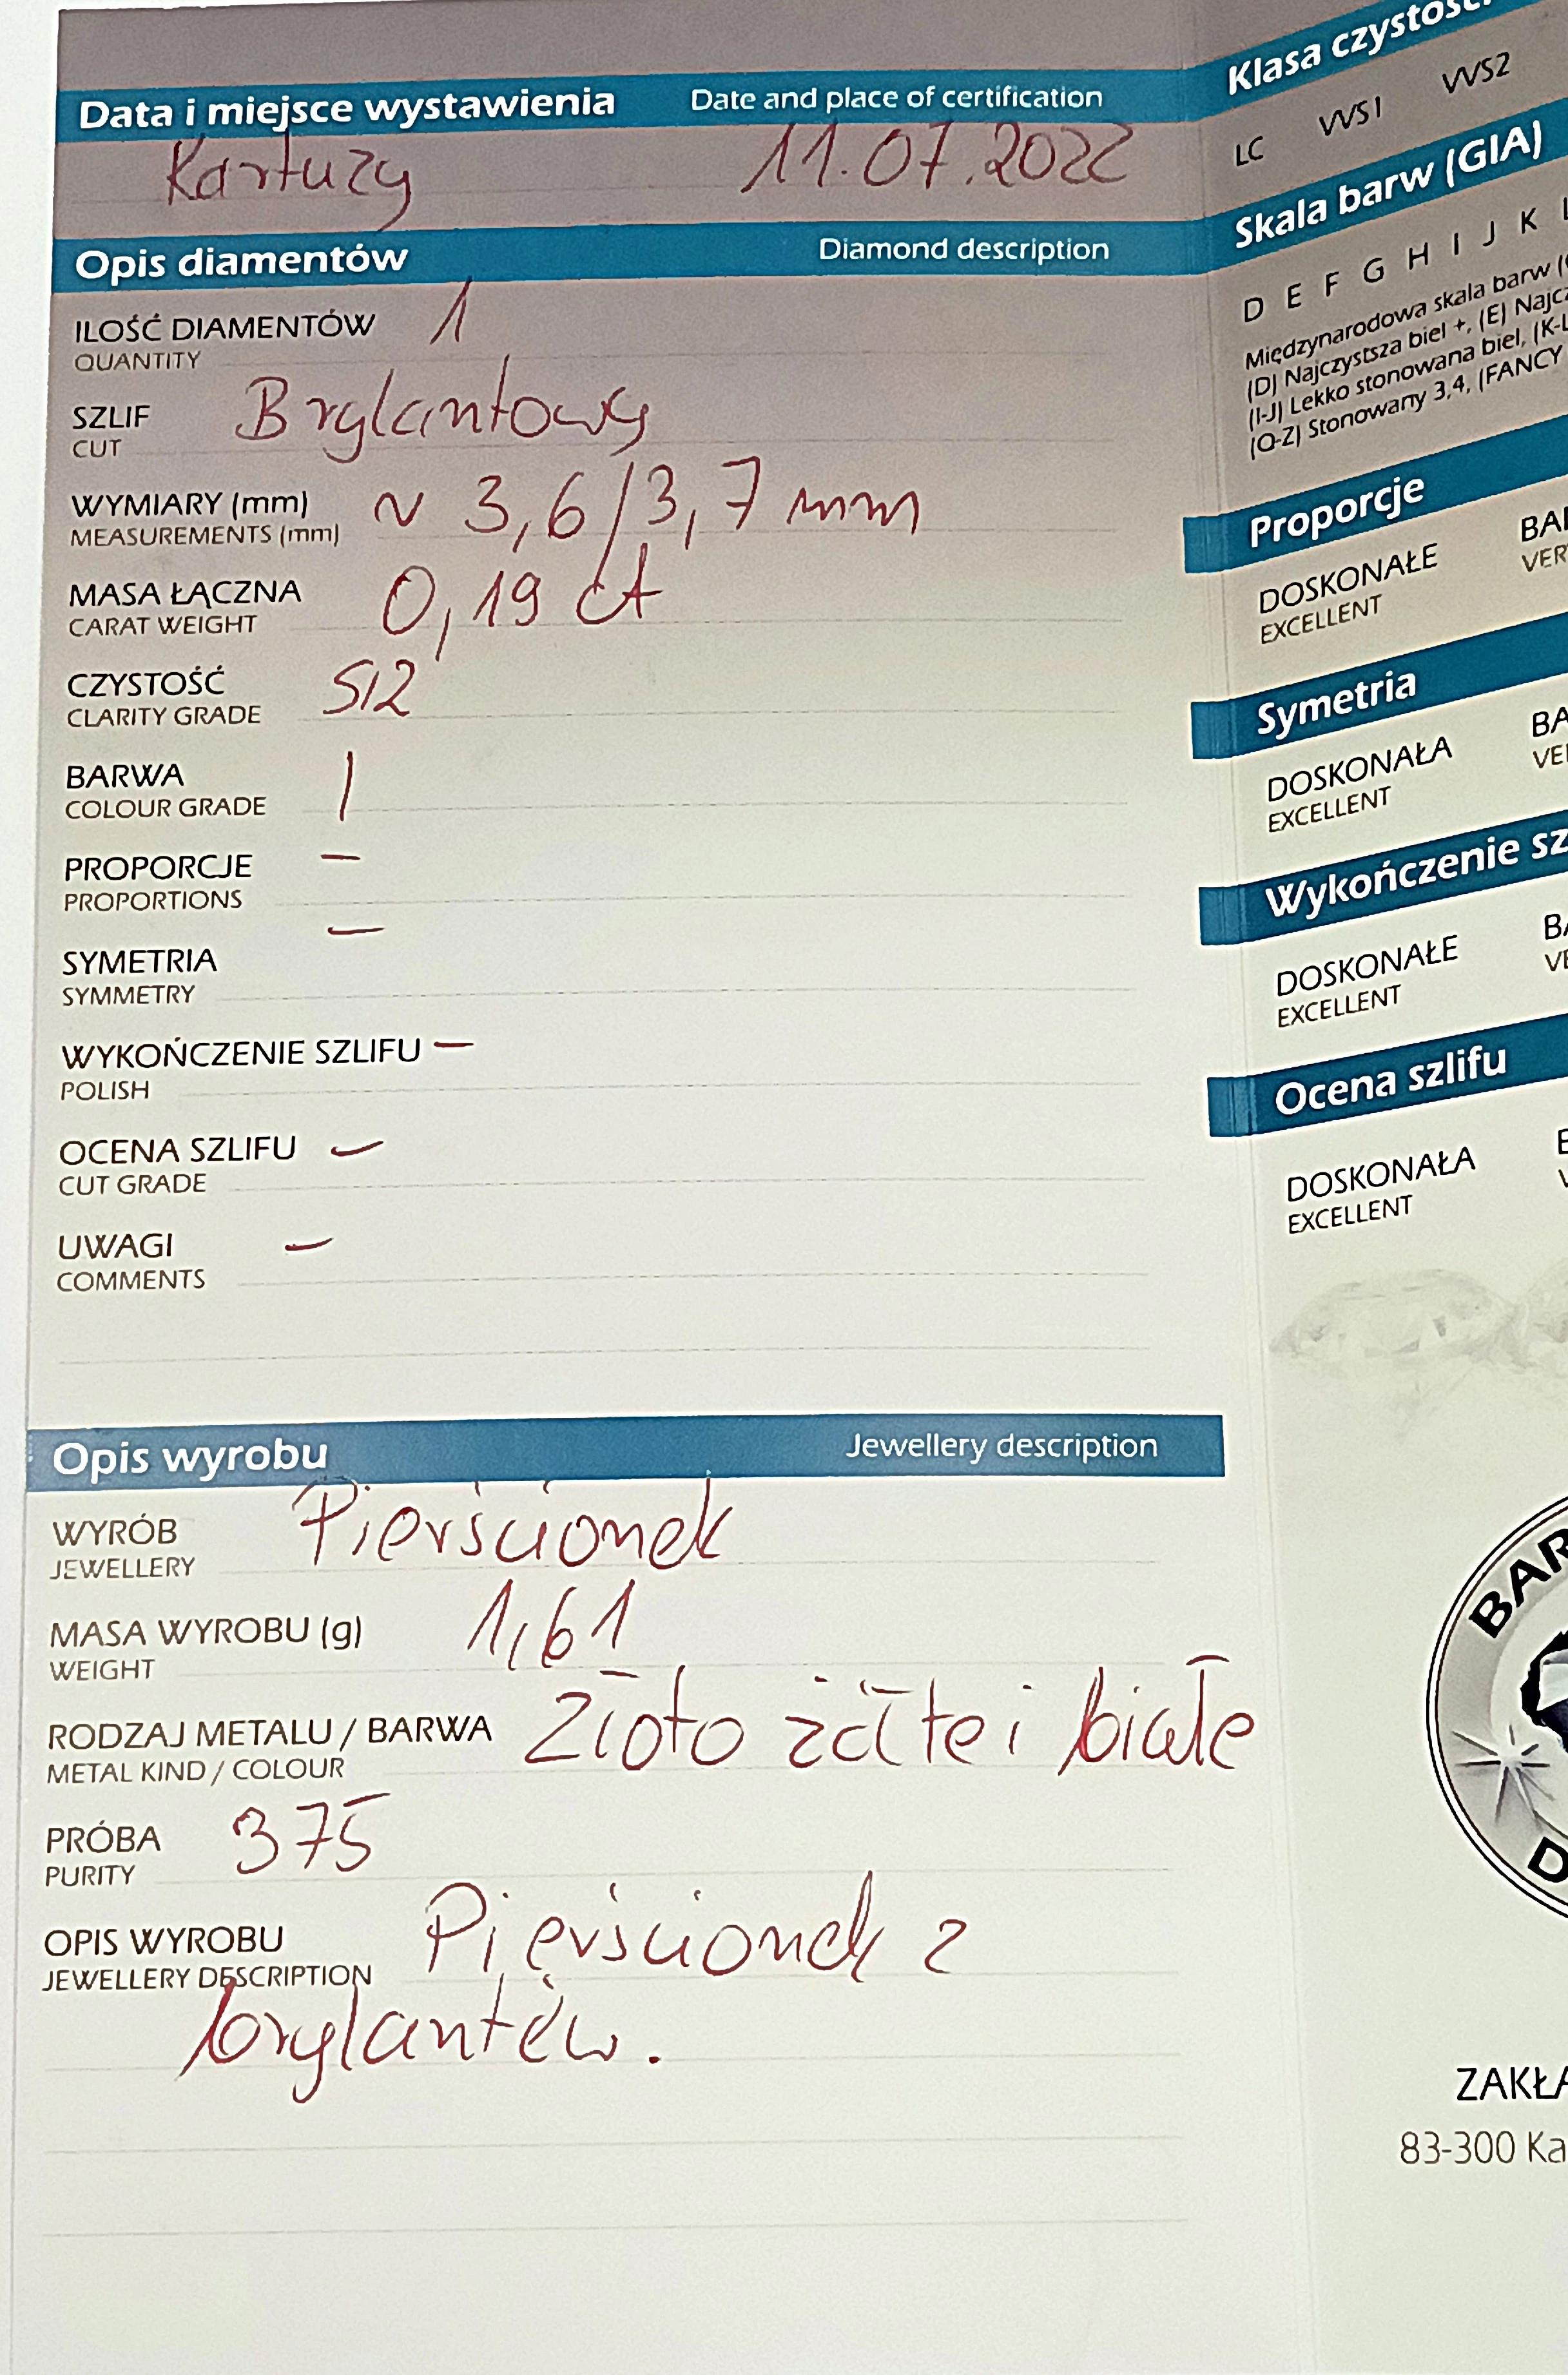 Data i miejsce wystawienia Date and place of certification
Kartuzy 11.07.2022
Opis diamentów Diamond description
ILOŚĆ DIAMENTÓW 1
QUANTITY
SZLIF Brylantowy
CUT
WYMIARY (mm) ~ 3,6/3,7 mm
MEASUREMENTS (mm)
MASA ŁĄCZNA 0,19 ct
CARAT WEIGHT
CZYSTOŚĆ SI2
CLARITY GRADE
BARWA I
COLOUR GRADE
PROPORCJE –
PROPORTIONS
SYMETRIA –
SYMMETRY
WYKOŃCZENIE SZLIFU –
POLISH
OCENA SZLIFU –
CUT GRADE
UWAGI –
COMMENTS
Opis wyrobu Jewellery description
WYRÓB Pierścionek
JEWELLERY
MASA WYROBU (g) 1,61
WEIGHT
RODZAJ METALU / BARWA Złoto żółte i białe
METAL KIND / COLOUR
PRÓBA 375
PURITY
OPIS WYROBU Pierścionek z
JEWELLERY DESCRIPTION
brylantem.
Klasa czystości
LC VVS1 VVS2
Skala barw (GIA)
D E F G H I J K
Międzynarodowa skala barw
(D) Najczystsza biel +, (E)
(I-J) Lekko stonowana biel, (K-L
(Q-Z) Stonowany 3,4, (FANCY
Proporcje
DOSKONAŁE
EXCELLENT
Symetria
DOSKONAŁA
EXCELLENT
Wykończenie sz
DOSKONAŁE
EXCELLENT
Ocena szlifu
DOSKONAŁA
EXCELLENT
BAR
D
ZAKŁA
83-300 Ka